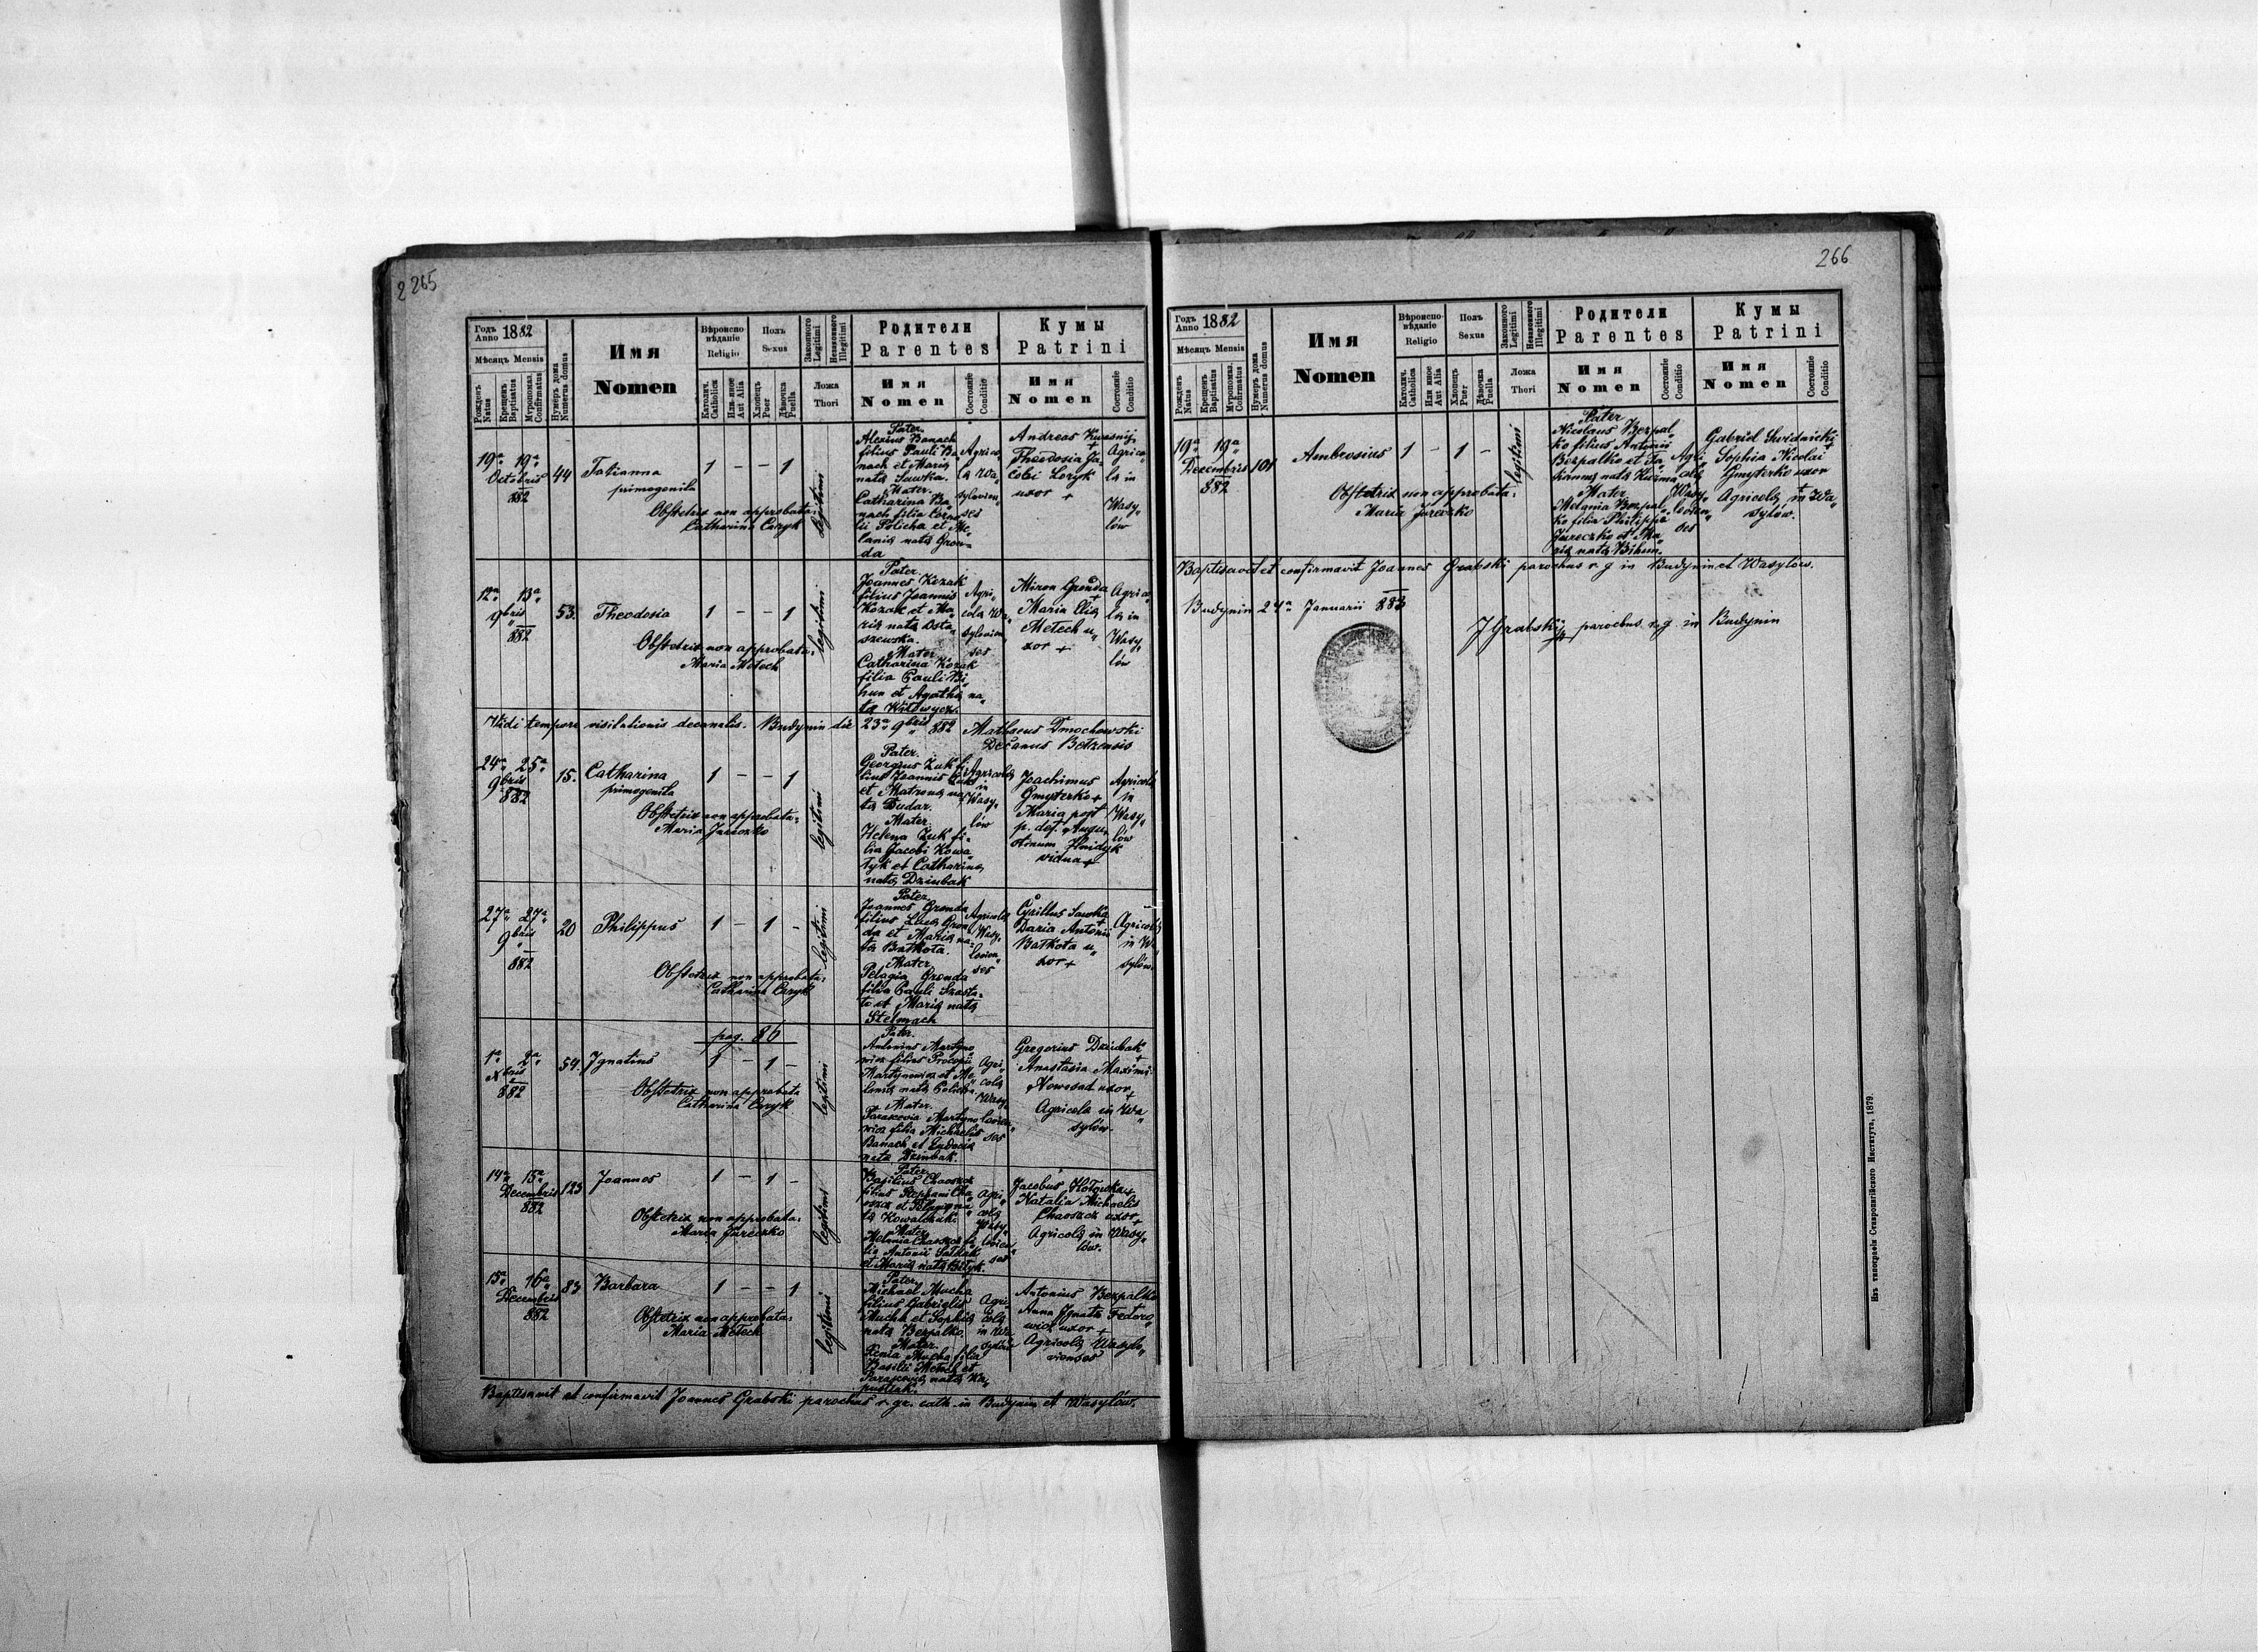 2 265
Годъ Anno 1882
Мѣсяцъ Mensis
Рожденъ Natus
Крещенъ Baptisatus
Мѵропомаз. Confirmatus
Нумеръ дома Numerus domus
Имя
Nomen
Вѣроиспо-
вѣданіе
Religio
Католич. Catholica
Или иное Aut Alia
Полъ
Sexus
Хлопецъ Puer
Дѣвочка Puella
Законного Legitimi
Незаконного Illegitimi
Ложа
Thori
Родители
Parentes
Имя
Nomen
Состояніе Conditio
Кумы
Patrini
Имя
Nomen
Состояніе Conditio
19a 19a
Octobris
882
44
Tatianna
primogenita
1 - - 1
Obstetrix non approbata:
Catharina Ceryk
legitimi
Pater
Alexius Banach
filius Pauli Ba
nach et Maria
nata Sawka.
Mater.
Catharina Ba
nach filia
Policha et Me
lania nata Gron
da
Agrico
la Wa
sylovien
ses
Andreas
Theodosia Ja
cobi Leryk
uxor +
Agrico
la in
Wasy
lów
12a 13a
9bris
882
53.
Theodosia
1 - - 1
Obstetrix non approbata:
Maria Metech
legitimi
Pater.
Joannes Kozak
filius Joannis
Kozak et Ma
ria nata Osta
szewska.
Mater
Catharina Kozak
filia Pauli Bi
hun et Agatha na
ta
Agri
cola Wa
sylovien
ses
Miron Gronda
+
Maria Elia
Metech u
xor +
Agrico
la in
Wasy
lów
Vidi tempore visitationis decanalis. Budynin die 23a 9bris 882 Mathaeus Dmochowski
Decanus Bełzensis
24a 25a
9bris
882
15.
Catharina
primogenita
1 - - 1
Obstetrix non approbata:
Maria Jureczko
legitimi
Pater
Georgius Zuk fi
lius Joannis Zuk
et Matrona na
ta Dudar.
Mater.
Helena Zuk fi
lia Jacobi Kowa
lyk et Catharina
nata Dziubak
Agricola
in
Wasy
lów
Joachimus
Gmyterko +
Maria post
p. def. Augu
stinum Hnidyk
vidua +
Agricola
in
Wasy
lów
27a 27a
9bris
882
20
Philippus
1 - 1 -
Obstetrix non approbata:
Catharina Ceryk
legitimi
Pater
Joannes Gronda
filius Luca Gron
da et Maria na
ta Batkota.
Mater
Pelagia Gronda
filia Pauli
et Maria nata
Stelmach
Agricola
Wasy
lovien
ses
Cyrillus Sawka
+
Daria Antonii
Batkota u
xor +
Agricola
in Wa
sylów.
pag. 86
1a 2a
Xbris
882
54.
Ignatius
1 - 1 -
Obstetrix non approbata
Catharina Ceryk
legitimi
Pater.
Antonius Martyno
wicz filius Procopii
Martynowicz et Me
lania nata Policha.
Mater.
Parascevia Martyno
wicz filia Michaelis
Banach et Eudocia
nata Dziubak.
Agri
cola
Wasy
lovien
ses
Gregorius Dziubak
+
Anastasia Maximi
Nowosad uxor
+
Agricola in Wa
sylów.
14a 15a
Decembris
882
123
Joannes
1 - 1 -
Obstetrix non approbata:
Maria Jureczko
legitimi
Pater
Basilius Chaoszcz
filius Stephani Cha
oszcz et Pelagia na
ta Kowalchuk.
Mater
Melania Chaoszcz fi
lia Antonii
et Maria nata
Agri
cola
Wasy
lovien
ses
Jacobus
Natalia Michaelis
Chaoszcz uxor
+
Agricola in Wasy
lów.
15a 16a
Decembris
882
83
Barbara
1 - - 1
Obstetrix non approbata:
Maria Metech
legitimi
Pater
Michael Mucha
filius Gabrielis
Mucha et Sophia
nata Bezpalko
Mater.
Xenia Mucha filia
Basilii Metech et
Parascevia nata
Agri
cola
in Wa
sylów
Antonius Bezpalko
Anna Ignatii Fedoro
wicz uxor +
Agricola Wasylo
vienses
Baptisavit et confirmavit Joannes Grabski parochus r. gr. cath. in Budynin et Wasylów.
266
Годъ Anno 1882
Мѣсяцъ Mensis
Рожденъ Natus
Крещенъ Baptisatus
Мѵропомаз. Confirmatus
Нумеръ дома Numerus domus
Имя
Nomen
Вѣроиспо-
вѣданіе
Religio
Католич. Catholica
Или иное Aut Alia
Полъ
Sexus
Хлопецъ Puer
Дѣвочка Puella
Законного Legitimi
Незаконного Illegitimi
Ложа
Thori
Родители
Parentes
Имя
Nomen
Состояніе Conditio
Кумы
Patrini
Имя
Nomen
Состояніе Conditio
19a 19a
Decembris
882
101
Ambrosius
1 - 1 -
Obstetrix non approbata:
Maria Jureczko
legitimi
Pater
Nicolaus Bezpal
ko filius Antonii
Bezpalko et Ta
tianna nata Kuzma
Mater
Melania Bezpal
ko filia Philippi
Jureczko et Ma
ria nata Bihun.
Agri
cola
Wasy
lovien
ses
Gabriel Swidnicki
+
Sophia Nicolai
Gmyterko uxor
+
Agricola in Wa
sylów.
Baptisavit et confirmavit Joannes Grabski parochus r. g. in Budynin et Wasylów.
Budynin 24a Januarii 883
J Grabski parochus r. g. in Budynin
Изъ типографіи Ставропигійского Института, 1879.